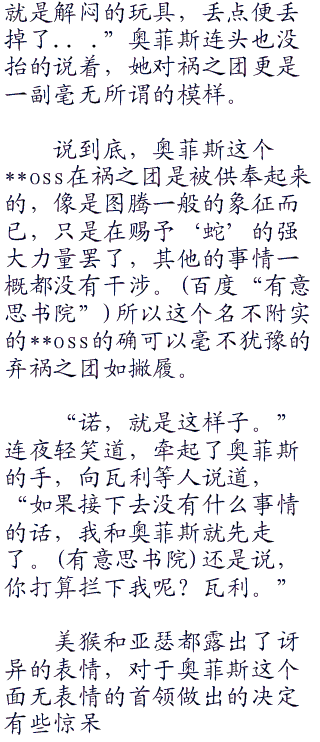 就是解闷的玩具，丢点便丢
掉了. . .”奥菲斯连头也没
抬的说着，她对祸之团更是
一副毫无所谓的模样。
说到底，奥菲斯这个
**oss在祸之团是被供奉起来
的，像是图腾一般的象征而
已，只是在赐予‘蛇’的强
大力量罢了，其他的事情一
概都没有干涉。(百度“有意
思书院”)所以这个名不附实
的**oss的确可以毫不犹豫的
弃祸之团如撇履。
“诺，就是这样子。”
连夜轻笑道，牵起了奥菲斯
的手，向瓦利等人说道，
“如果接下去没有什么事情
的话，我和奥菲斯就先走
了。(有意思书院)还是说，
你打算拦下我呢？瓦利。”
美猴和亚瑟都露出了讶
异的表情，对于奥菲斯这个
面无表情的首领做出的决定
有些惊呆